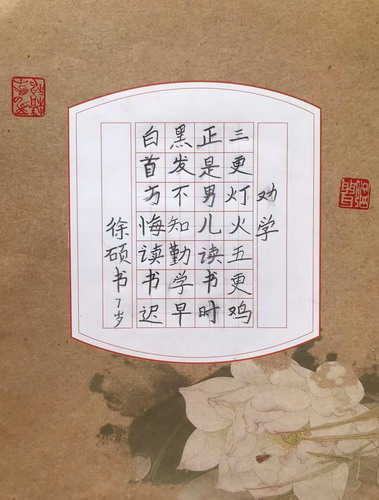 劝学
三更灯火五更鸡
正是男儿读书时
黑发不知勤学早
白首方悔读书迟
徐硕书7岁